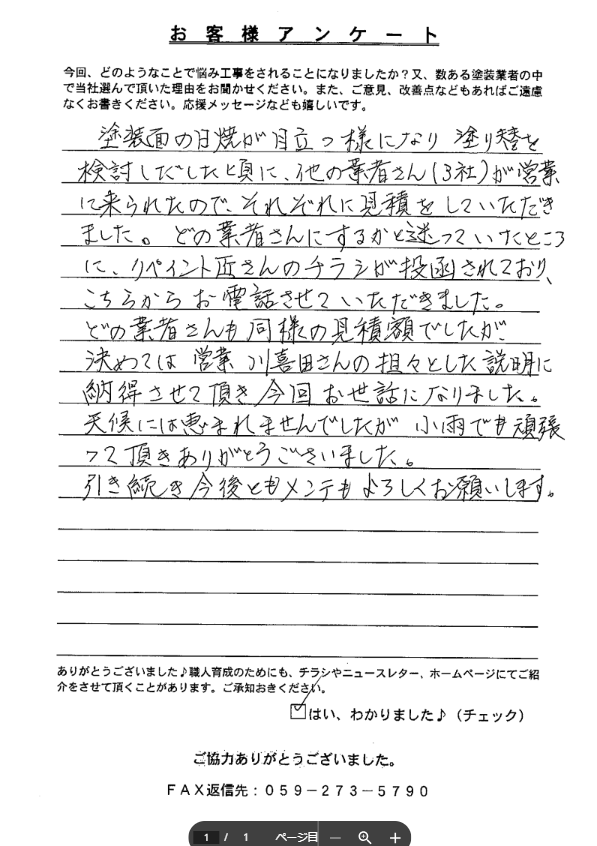 お客様アンケート
今回、どのようなことで悩み工事をされることになりましたか？又、数ある塗装業者の中
で当社選んで頂いた理由をお聞かせください。また、ご意見、改善点などもあればご遠慮
なくお書きください。応援メッセージなども嬉しいです。
塗装面の日焼が目立つ様になり 塗り替を
検討しだしたと頃に、他の業者さん(3社)が営業
に来られたので、それぞれに見積をしていただき
ました。どの業者さんにするかと迷っていたところ
に、リペイント匠さんのチラシが投函されており、
こちらからお電話させていただきました。
どの業者さんも同様の見積額でしたが
決めては営業 川喜田さんの担々とした説明に
納得させて頂き今回お世話になりました。
天候には恵まれませんでしたが 小雨でも頑張
って頂きありがとうございました。
引き続き今後ともメンテもよろしくお願いします。
ありがとうございました♪職人育成のためにも、チラシやニュースレター、ホームページにてご紹
介をさせて頂くことがあります。ご承知おきください。
☑はい、わかりました♪（チェック）
ご協力ありがとうございました。
ＦＡＸ返信先：０５９－２７３－５７９０
1 / 1 ページ目 － ＋